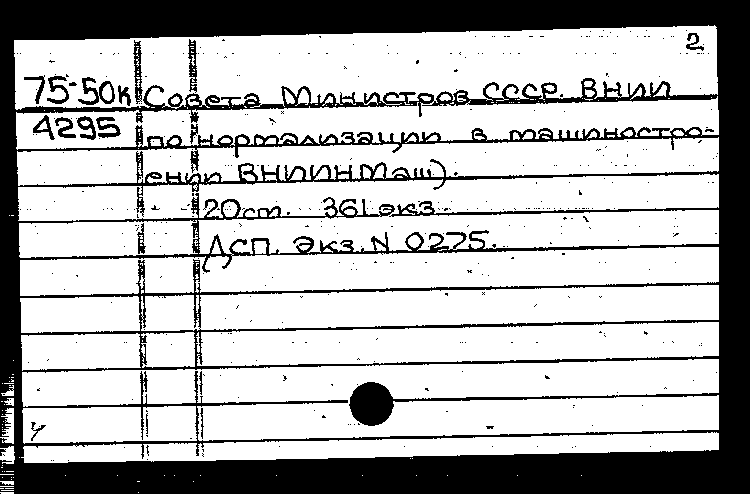 2
75-50к Совета Министров СССР. ВНИИ
4295 по нормализации в машиностро-
ении ВНИИНМаш).
20см. 361 экз.
ДСП. Экз. N 0275.